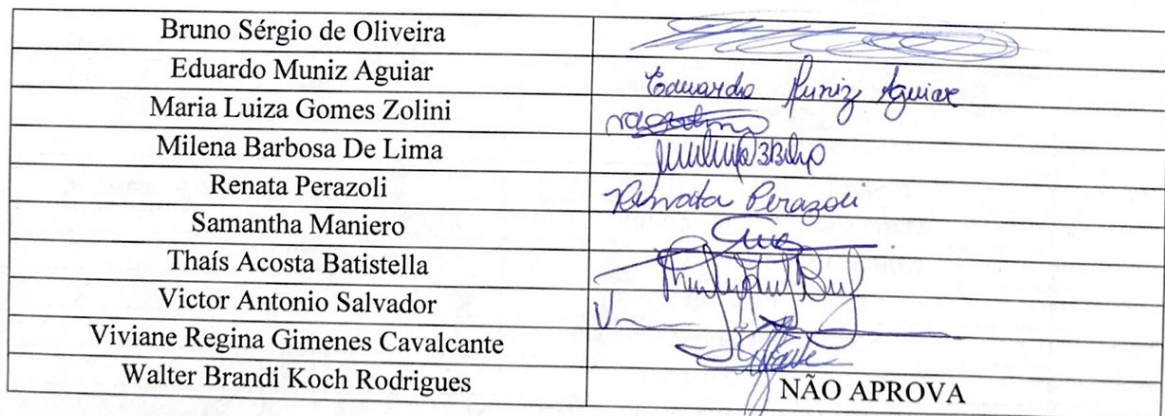 Bruno Sérgio de Oliveira
Eduardo Muniz Aguiar Eduardo Muniz Aguiar
Maria Luiza Gomes Zolini
Milena Barbosa De Lima
Renata Perazoli Renata Perazoli
Samantha Maniero
Thaís Acosta Batistella
Victor Antonio Salvador
Viviane Regina Gimenes Cavalcante
Walter Brandi Koch Rodrigues NÃO APROVA